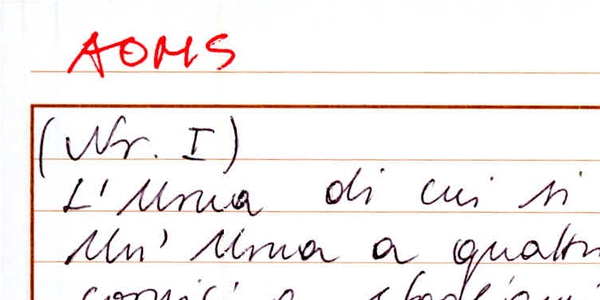 AOMS
(Nr. I)
L'Urna di cui si
Un' Urna a quattr